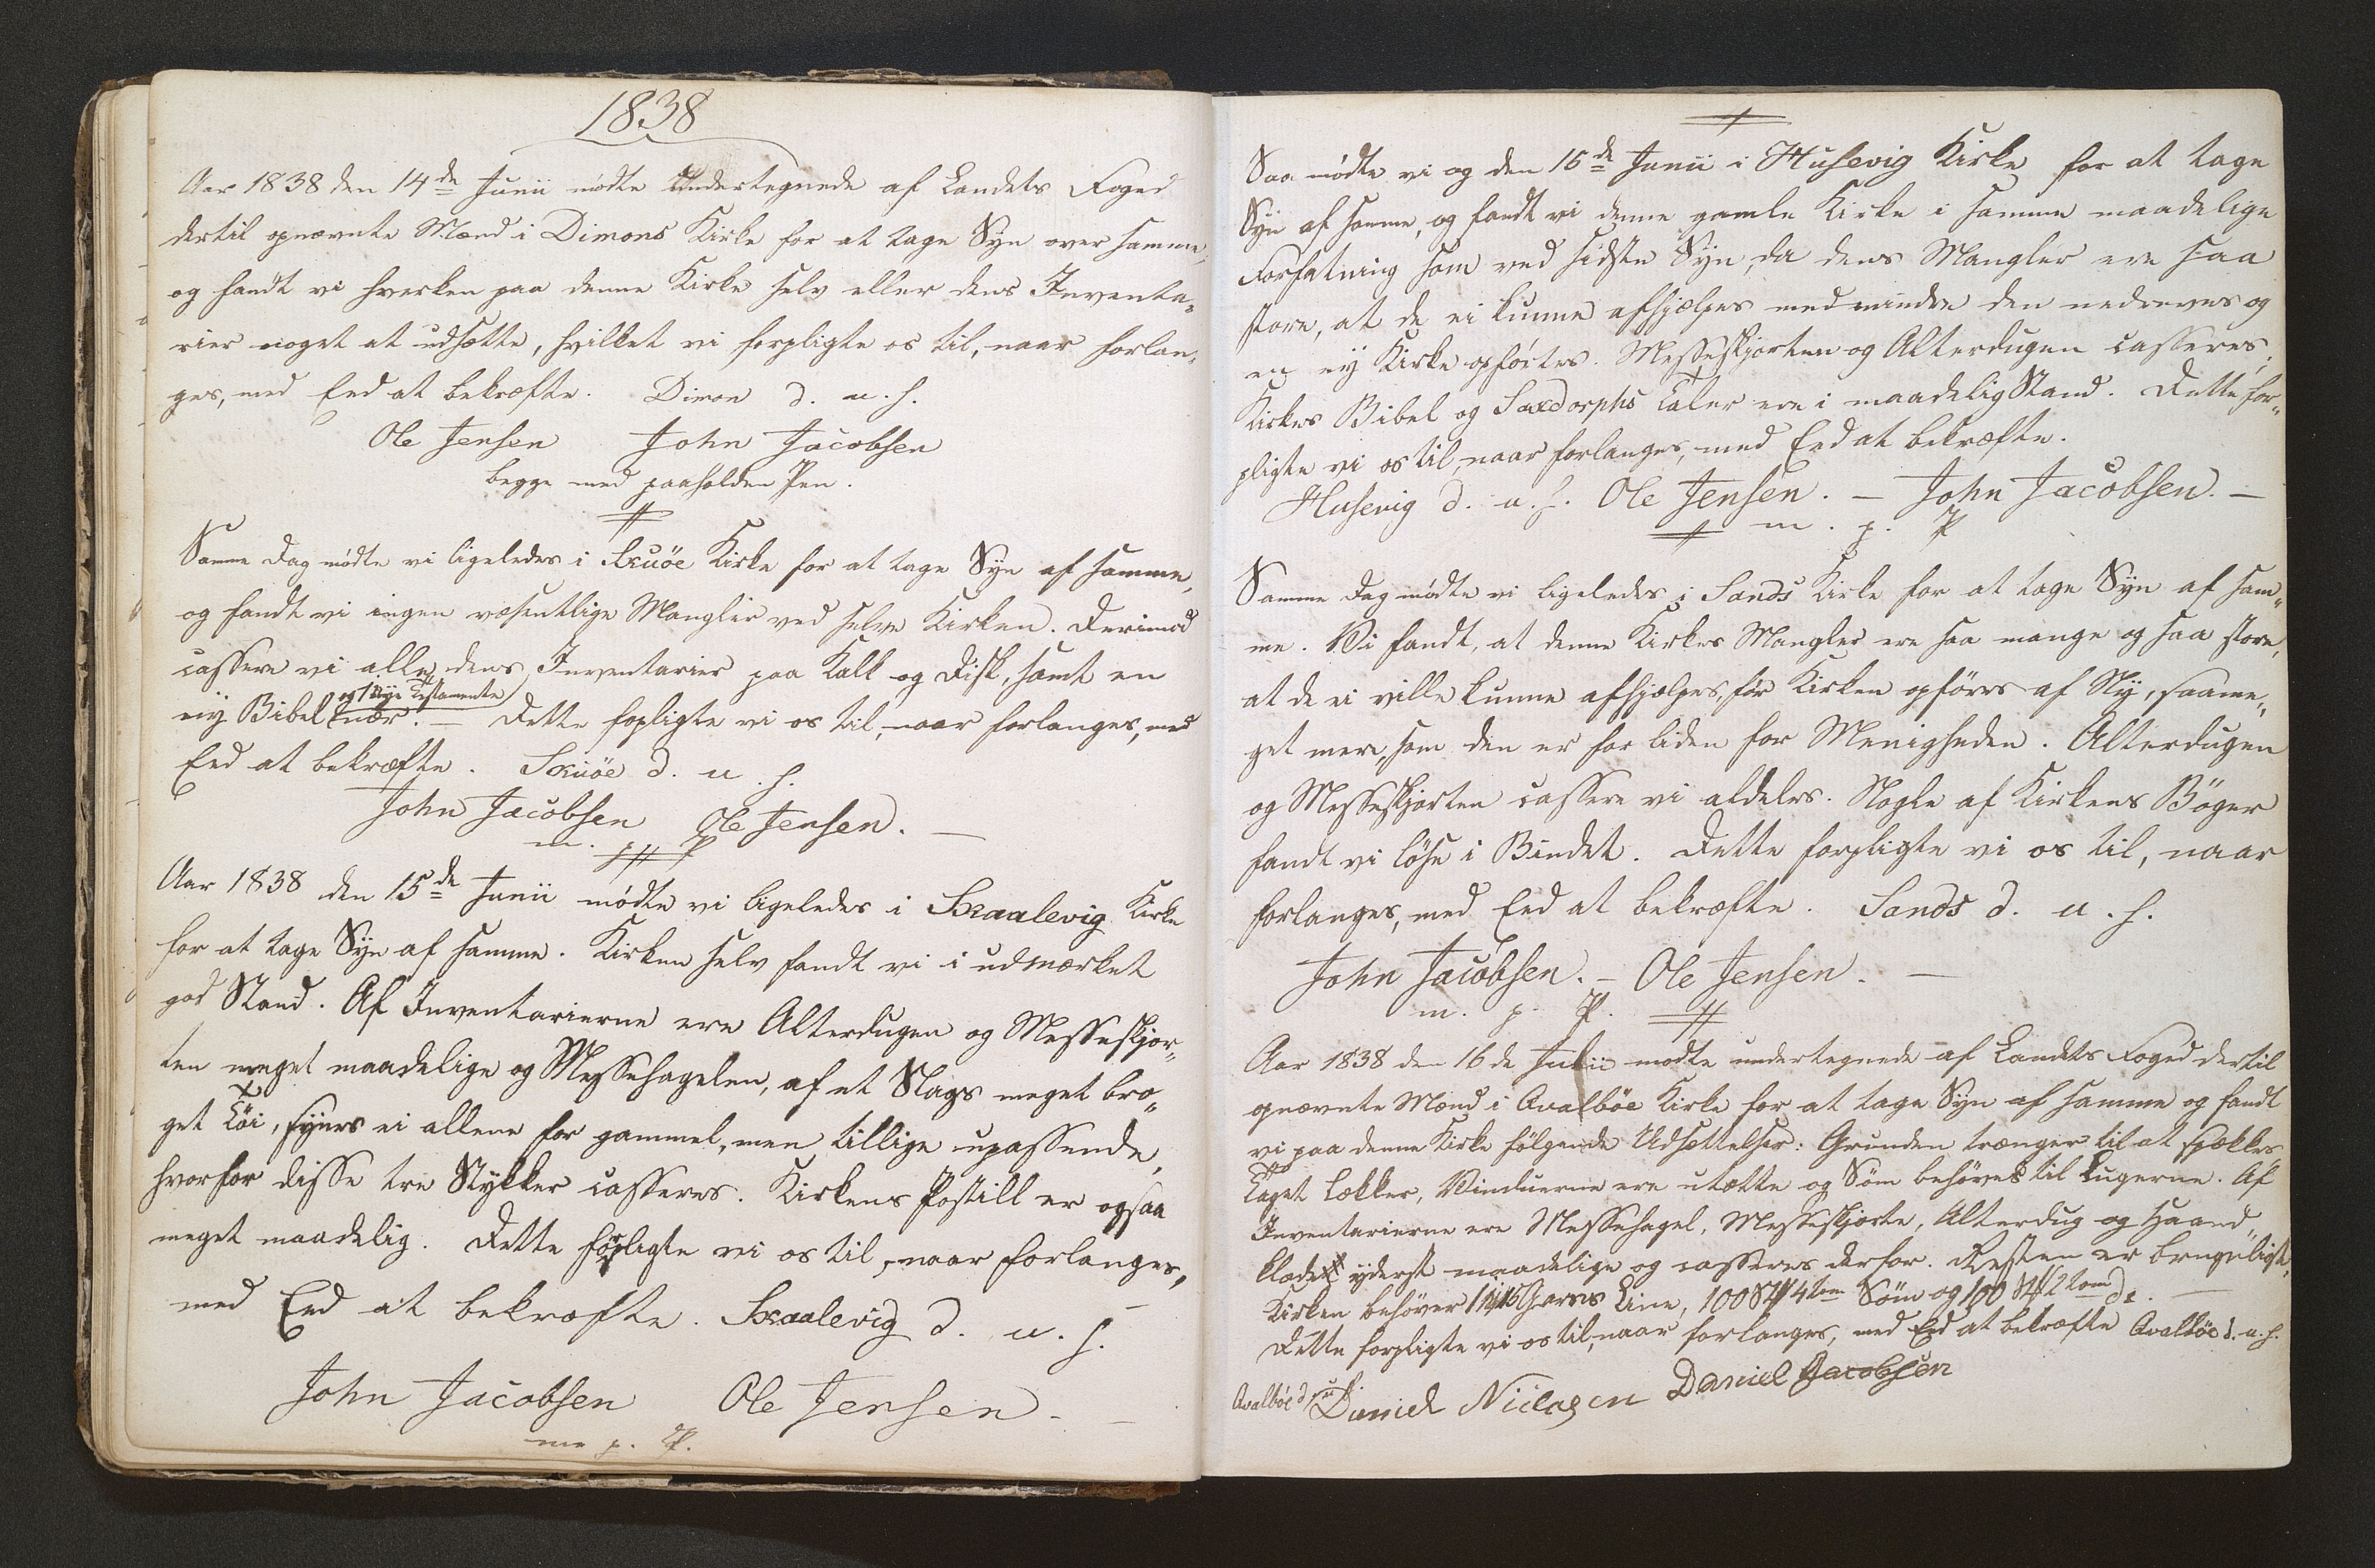 1838
Aar 1838 den 14de Junii mödte undertegnede af Landets Foged
dertil opnævnte Mænd i Dimons Kirke for at tage Syn over samme,
og fandt vi hverken paa denne Kirke selv eller dens Inventa„
rier noget at udsætte, hvilket vi forpligte os til, naar forlan„
ges, med Eed at bekræfte. Dimon d. u. s.
Ole Jensen John Jacobsen
begge med paaholden Pen.
Samme Dag mödte vi ligeledes i Skuöe Kirke for at tage Syn af samme,
og fandt vi ingen væsentlige Mangler ved selve Kirken. Derimod
cassere vi alle dens Inventarier paa Kalk og Disk, samt en
og 1 nye Testamente
ny Bibel nær. — Dette fopligte vi os til, naar forlanges, med
Eed at bekræfte. Skuöe d. u. s.
John Jacobsen Ole Jensen. —
m. p. P
Aar 1838 den 15de Junii mödte vi ligeledes i Skaalevig Kirke
for at tage Syn af samme. Kirken selv fandt vi i udmærket
god Stand. Af Inventarierne ere Alterdugen og Messeskjor„
ten meget maadelige og Messehagelen, af et Slags meget bro„
get Töi, synes ei allene for gammel, men tillige upassende,
hvorfor disse tre Stykker casseres. Kirkens Postill er ogsaa
meget maadelig. Dette forpligte vi os til, naar forlanges,
med Eed at bekræfte. Skaalevig d. u. s. —
John Jacobsen Ole Jensen. —
m. p. P.
Saa mödte vi og den 15de Junii i Husevig Kirke for at tage
Syn af samme, og fandt vi denne gamle Kirke i samme maadelige
Forfatning som ved sidste Syn, da dens Mangler ere saa
store, at de ei kunne afhjælpes med mindre den nedreves og
en ny Kirke opförtes. Messeskjorten og Alterdugen casseres,
Kirkes Bibel og Saxdorphs Taler ere i maadelig Stand. Dette for„
pligte vi os til, naar forlanges, med Eed at bekræfte.
Husevig d. u. s. Ole Jensen. — John Jacobsen. —
m. p. P
Samme Dag mödte vi ligeledes i Sands Kirke for at tage Syn af sam„
me. Vi fandt, at denne Kirkes Mangler ere saa mange og saa store,
at de ei ville kunne afhjælpes, för Kirken opföres af Ny, saame„
get mere, som den er for liden for Menigheden. Alterdugen
og Messeskjorten cassere vi aldeles. Nogle af Kirkens Böger
fandt vi löse i Bindet. Dette forpligte vi os til, naar
forlanges, med Eed at bekræfte. Sands d. u. s.
John Jacobsen. — Ole Jensen. —
m. p. P.
Aar 1838 den 16de Julii mödte undertegnede af Landets Foged dertil
opnævnte Mænd i Qvalböe Kirke for at tage Syn af samme og fandt
vi paa denne Kirke fölgende Udsættelser: Grunden trænger til at spækkes,
Taget lækker, Vinduerne ere utætte og Söm behöves til Lugerne. Af
Inventarierne ere Messehagel, Messeskjorte, Alterdug og Haand„
klæde yderst maadelige og casseres derfor. Resten er brugeligt.
Kirken behöver Garns Line, 100 St 4 tom Söm og 100 St 2 tom do. —
Dette forpligte vi os til, naar forlanges, med Eed at bekræfte Qvalböe d. u. s.
Qvalböe d. u. s. Daniel Nielasen Daniel Jacobsen